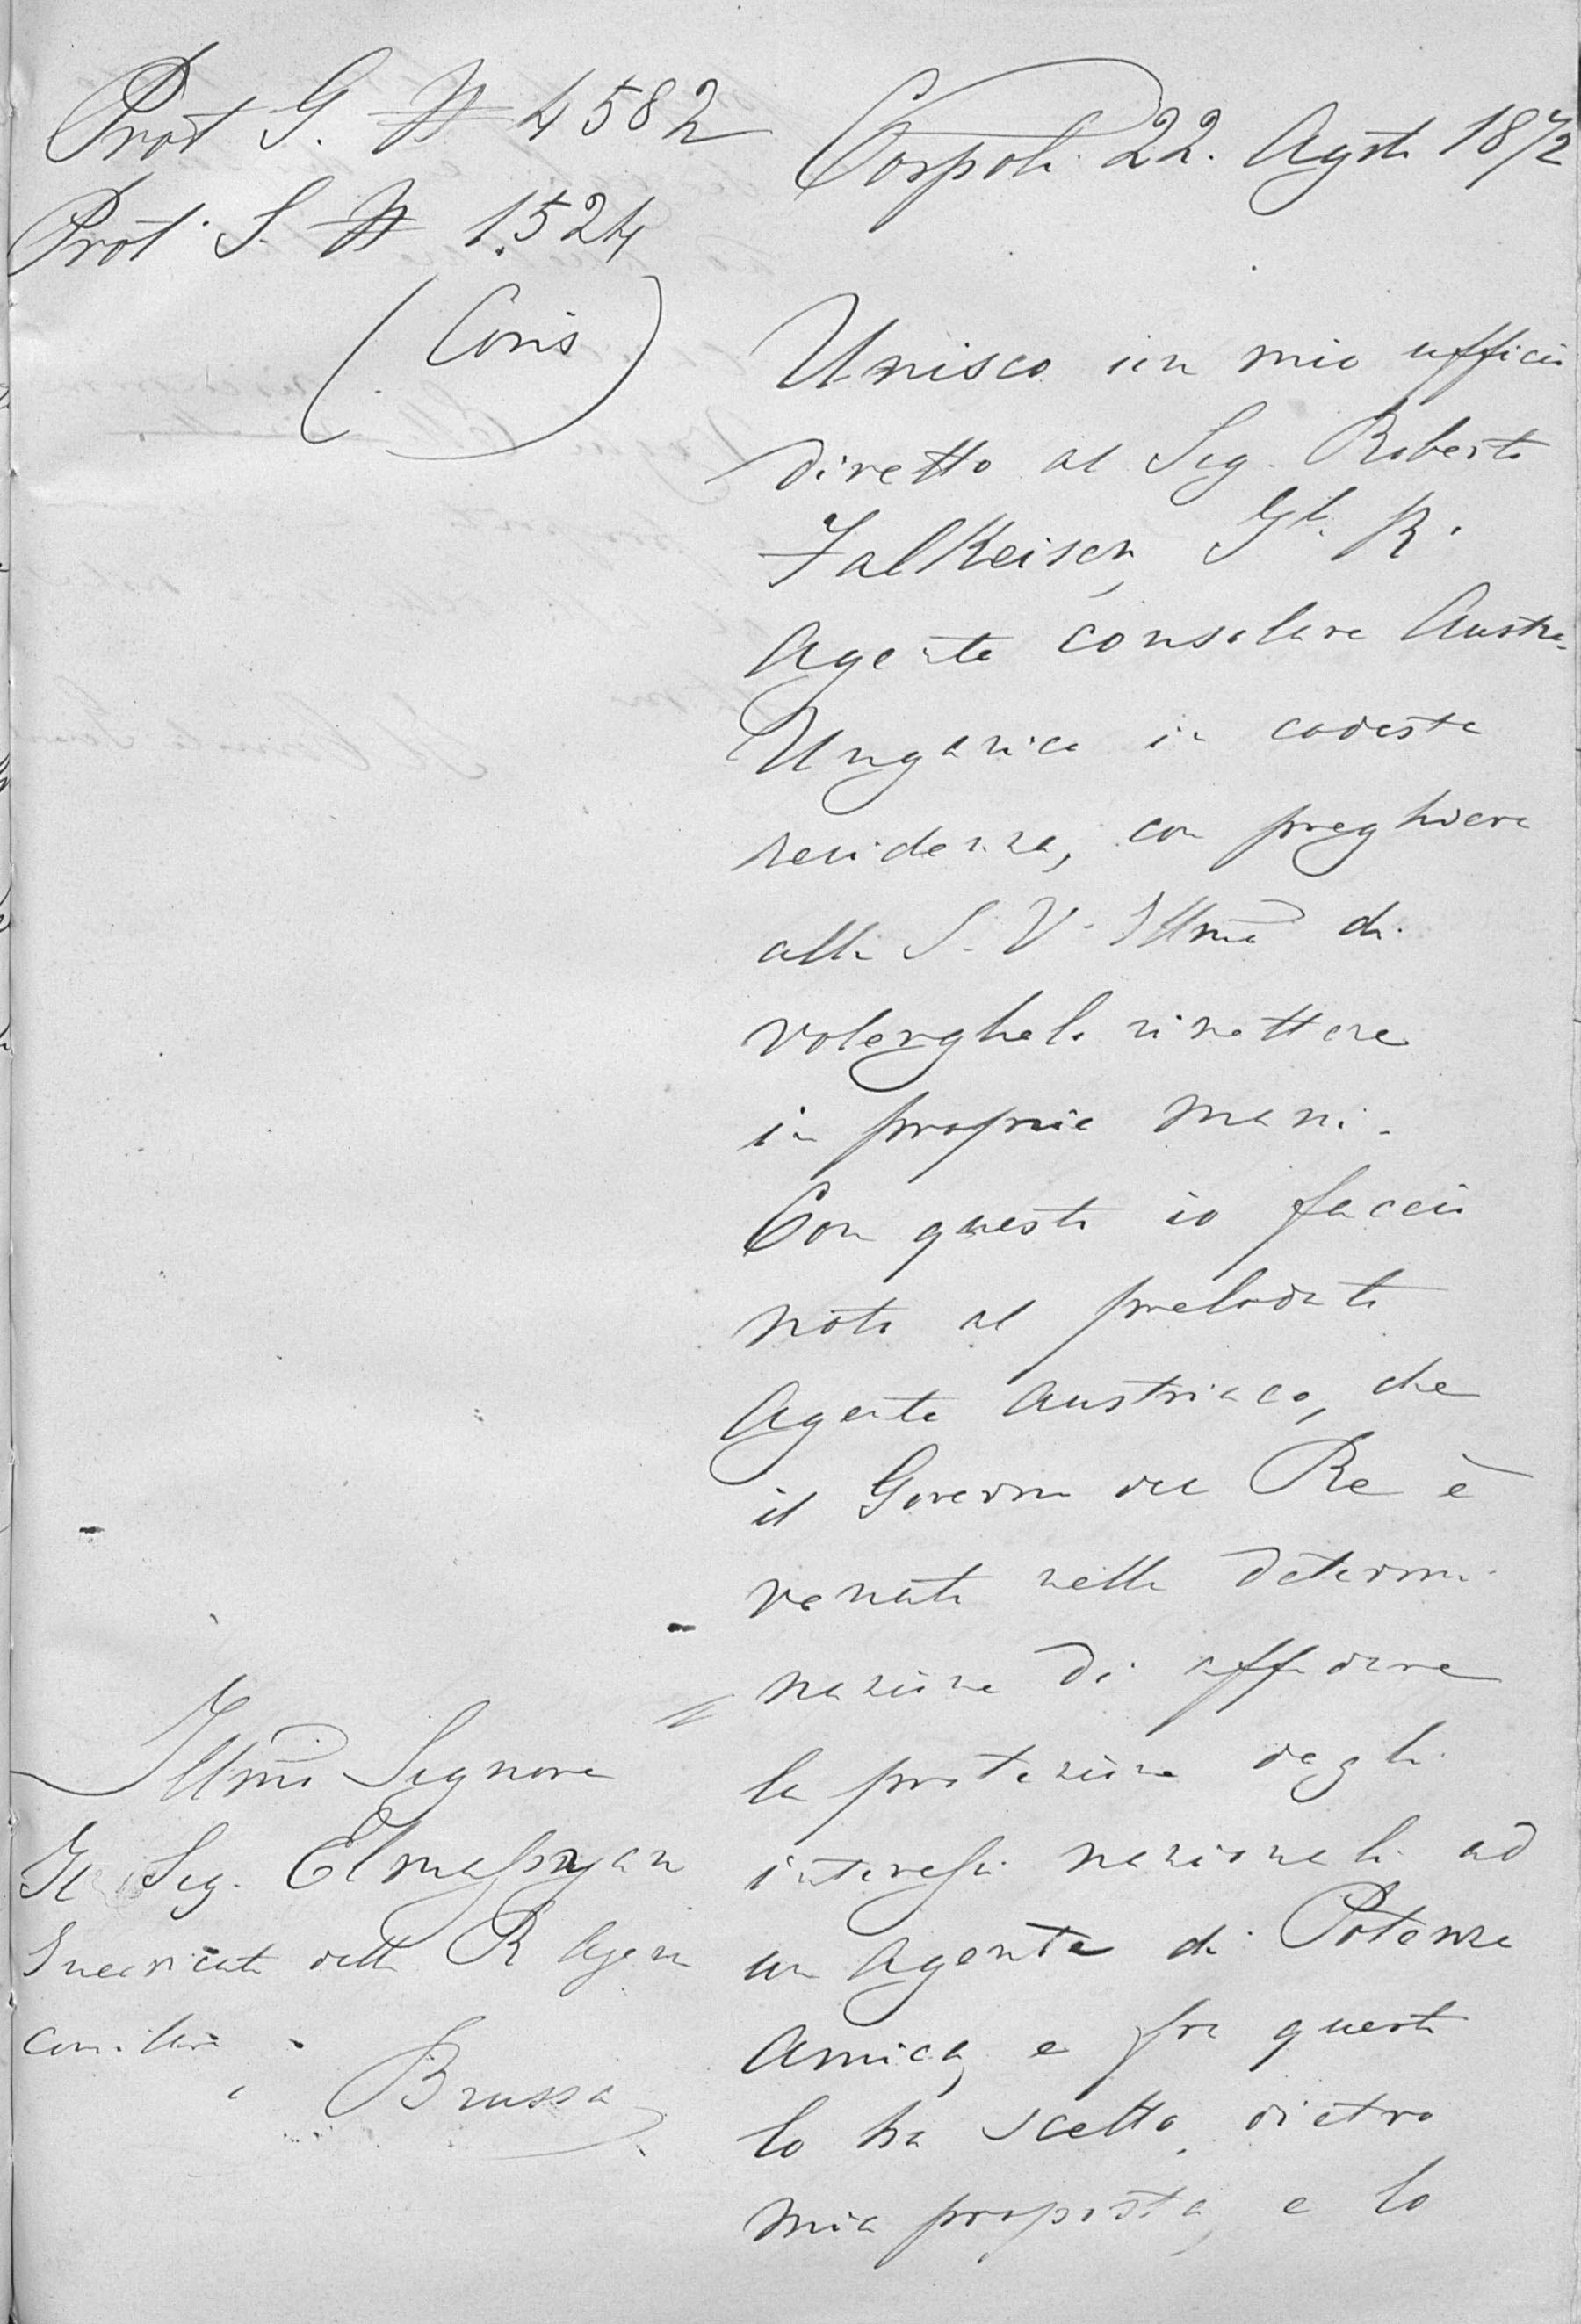 Prot G. N 4582
Prot. S. N 1524
(Cons)
Cospoli 22. Agsto 1872
Unisco un mio ufficio
diretto al Sig. Roberto
Falkeisen,
Agente consolare Austro-
Ungarico in codesta
residenza, con preghiera
alla S. V. Illma di
volerglielo rimettere
in proprie mani.
Con questo io faccio
noto al prelodato
Agente Austriaco, che
il Governo del Re è
venuto nella determi-
nazione di affidare
la protezione degli
interessi nazionali ad
un Agente di Potenza
Amica, e fra questi
lo ha scelto, dietro
mia proposta, e lo
Illmo Signore
Il Sig. Elmassian
Incaricato della R Agen
consolare
Brussa